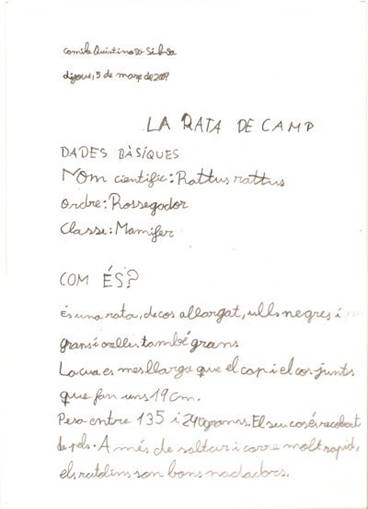 Camila Quintino
dijous, 5 de març de 2009
LA RATA DE CAMP
DADES BÀSIQUES
Nom científic: Rattus rattus
Ordre: Rossegador
Classe: Mamífer
COM ÉS?
És una rata, de cos allargat, ulls negres i
grans i orelles també grans
La cua es mes llarga que el cap i el cos junts
que fan uns 19 cm.
Pesa entre 135 i 240 grams. El seu cos és recobert
de pels. A més de saltar i corre molt rapid,
els ratolins son bons nadadors.